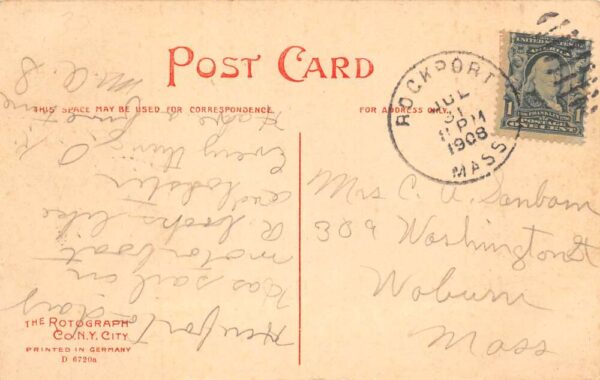 POST CARD
THIS SPACE MAY BE USED FOR CORRESPONDENCE.
FOR ADDRESS ONLY.
to-day
sail on
motorboat
looks like
and
Every thing O. K.
Have a fine time
M. A. S
ROCKPORT
JUL
31
PM
1908
MASS
1
FRANKLIN
Mrs C. A. Sanborn
309 Washington St
Woburn
Mass
THE ROTOGRAPH
CO. N.Y. CITY
PRINTED IN GERMANY
D 6720a